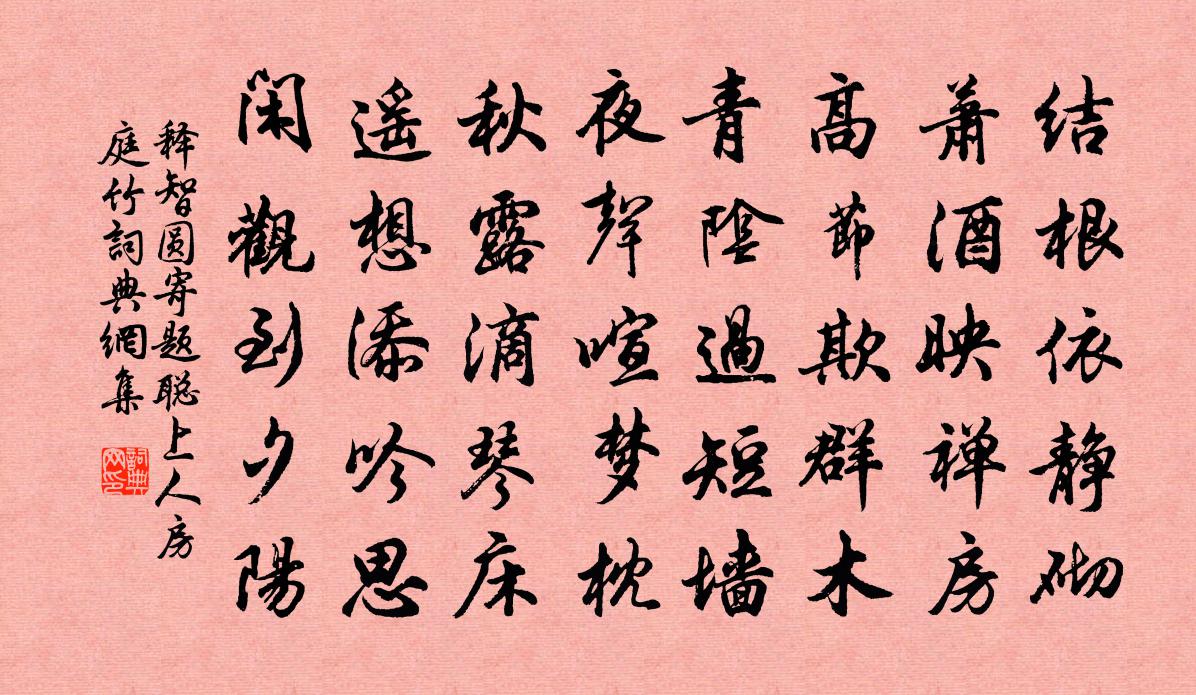 结根依静砌
萧酒映禅房
高节欺群木
青陰過短墙
夜聲喧梦枕
秋露滴琴床
遥想添吟思
闲觀到夕陽
释智圆寄题聪上人房
庭竹詞典網集
詞典网印